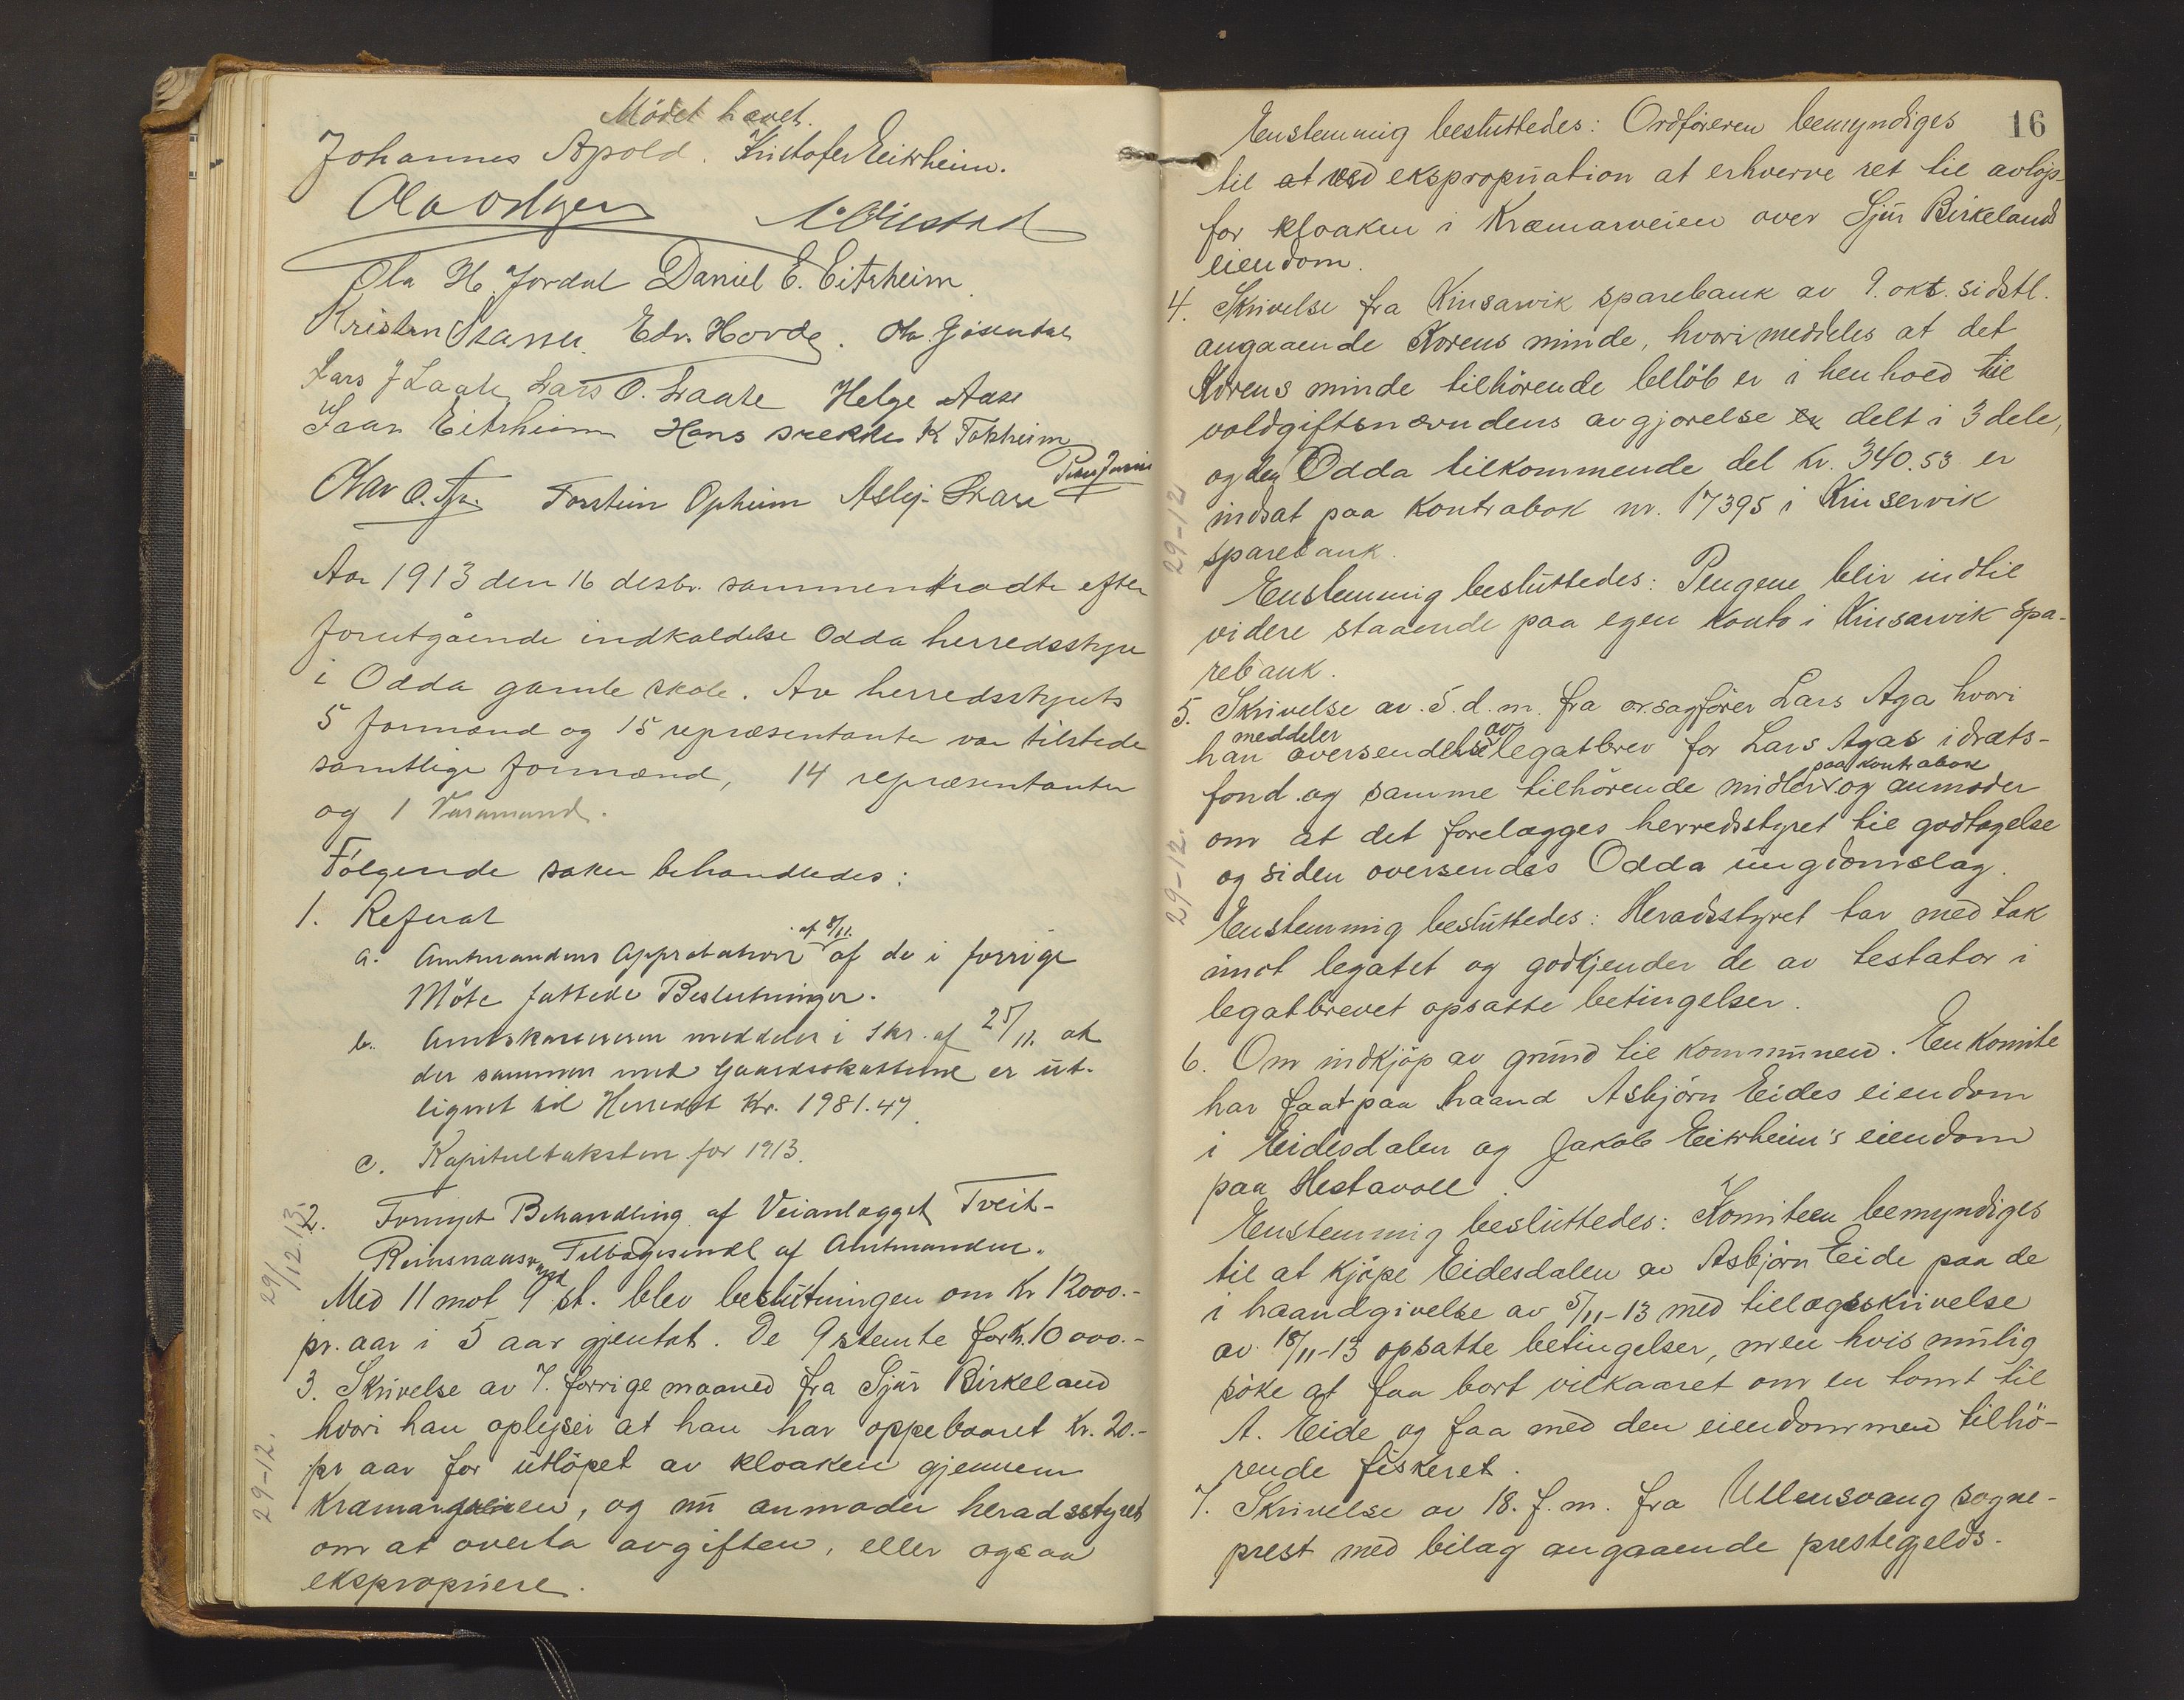 Mødet hævet.
Johannes Apold. Kristofer Eitrheim.
Ola H. Jordal Daniel E. Eitrheim
Kristen Skanu. Edv. Hovde. Ola Gjøsendal
Lars J Laate Lars O. Laate Helge Aase
Isaar Eitrheim Hans Prestu K Tokheim
Olav O. Torstein Opheim Asbj. Braar
Aar 1913 den 16 desbr. sammentraadte efter
forutgående indkaldelse Odda herredsstyre
i Odda gamle skole. Av herredsstyrets
5 formænd og 15 repræsentanter var tilstede
samtlige formænd, 14 repræsentanter
og 1 Varamand.
Følgende saker behandledes:
1. Referat
a. Amtmandens Approbation af 8/11. af de i forrige
Møte fattede Beslutninger.
b. Amtskassereren meddeler i Skr. af 25/11. at
der sammen med Gaardsskatterne er ut-
lignet til Herredet Kr. 1981.47.
c. Kapitultaksten for 1913.
29/12 13. 2. Fornyet Behandling af Veianlægget Tveit-
Reinsnaas Tilbagesendt af Amtmanden.
Med 11 mot 9 st. blev beslutningen om Kr 12000.-
pr. aar i 5 aar gjentat. De 9 stemte for Kr. 10 000.-
3. Skrivelse av 7. forrige maaned fra Sjur Birkeland
hvori han oplyser at han har oppebaaret Kr. 20.-
29-12. pr aar for utløpet av kloaken gjennem
Kræmarveien, og nu anmoder heradsstyret
om at overta avgiften, eller ogsaa
ekspropriere.
16
Enstemmig besluttedes: Ordføreren bemyndiges
til at ved ekspropriation at erhverve ret til avløp
for kloaken i Kræmarveien over Sjur Birkelands
eiendom.
4. Skrivelse fra Kinsarvik sparebank av 9. okt. sidstl.
angaaende Korens minde, hvori meddeles at det
Korens minde tilhørende beløb er i henhold til
voldgiftsnævndens avgjørelse er delt i 3 dele,
og den Odda tilkommende del Kr. 340.53 er
29-12 indsat paa Kontrabok nr. 17395 i Kinservik
sparebank.
Enstemmig besluttedes: Pengene blir indtil
videre staaende paa egen konto i Kinsarvik spa-
rebank.
5. Skrivelse av 5. d. m. fra or.sagfører Lars Aga hvori
han meddeler oversendelse av legatbrev for Lars Agas idræts-
fond og samme tilhørende midler paa kontrabok og anmoder
29-12. om at det forelægges herredsstyret til godtagelse
og siden oversendes Odda ungdomslag.
29-12 Enstemmig besluttedes: Heradsstyret tar med tak
imot legatet og godkjender de av testator i
legatbrevet opsatte betingelser.
6. Om indkjøp av grund til kommunen. En komite
har faat paa haand Asbjørn Eides eiendom
i Eidesdalen og Jakob Eitrheim's eiendom
paa Hestavoll.
Enstemmig besluttedes: Komiteen bemyndiges
til at kjøpe Eidesdalen av Asbjørn Eide paa de
i haandgivelse av 5/11-13 med tillægsskrivelse
av 18/11-13 opsatte betingelser, men hvis mulig
søke at faa bort vilkaaret om en tomt til
A. Eide og faa med den eiendommen tilhø-
rende fiskeret.
7. Skrivelse av 18. f. m. fra Ullensvang sogne-
prest med bilag angaaende prestegjelds-